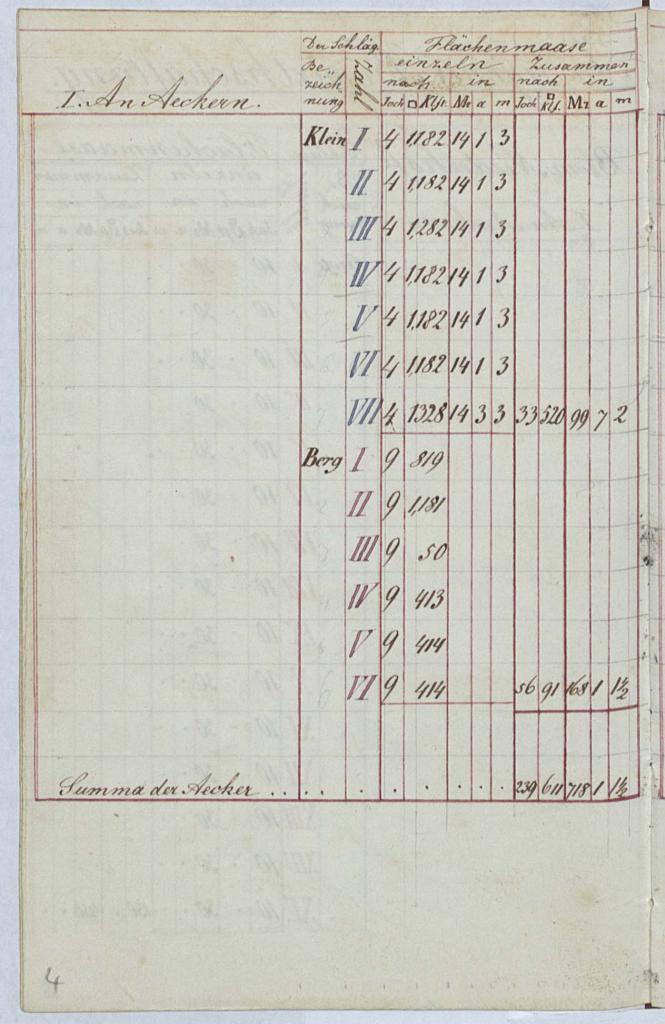 Der Schläg. Flächenmaase
einzeln Zusammen
Be- zeich- nung Zahl nach in nach in
I. An Aeckern. Joch □Klft. Mz a m Joch □Klf. Mz a m
Klein I 4 1,182 14 1 3
II 4 1,182 14 1 3
III 4 1,282 14 1 3
IV 4 1,182 14 1 3
V 4 1,182 14 1 3
VI 4 1,182 14 1 3
VII 4 1328 14 3 3 33 520 99 7 2
Berg I 9 819
II 9 1,181
III 9 50
IV 9 413
V 9 414
VI 9 414 56 91 168 1 1½
Summa der Aecker . . . . . . . . . 239 611 718 1 1½
4